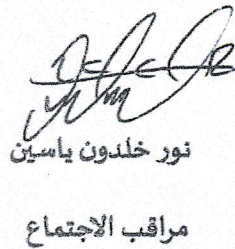 نور خلدون ياسين
مراقب الاجتماع